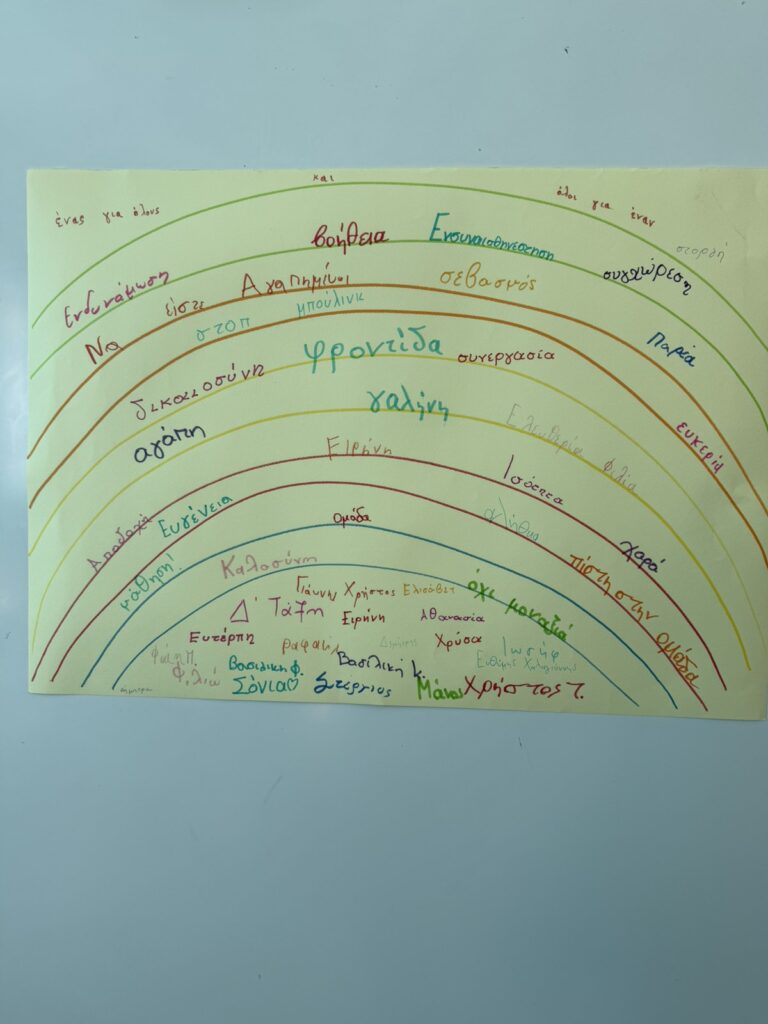 ένας για όλους και όλοι για έναν
στοργή
βοήθεια
Ενδυνάμωση
συγχώρεση
Να είστε Αγαπημένοι
σεβασμός
στοπ μπούλινκ
Παρέα
φροντίδα
συνεργασία
δικαιοσύνη
γαλήνη
αγάπη
Ελευθερία φιλία
ευκερία
Ειρήνη
Ισότητα
Αποδοχή
Ευγένεια
ομάδα
αλήθια
χαρά
μάθηση!
Καλοσύνη
πίστη στην ομάδα
Γιάννης Χρήστος Ελισάβετ
όχι μοναξιά
Δ' Τάξη Ειρήνη Αθανασία
Ευτέρπη ραφαήλ Χρύσα Ιωσήφ
Βασιλική Φ. Βασιλική Κ.
Σόνια♡ Στέργιος Μάνος Χρήστος Τ.